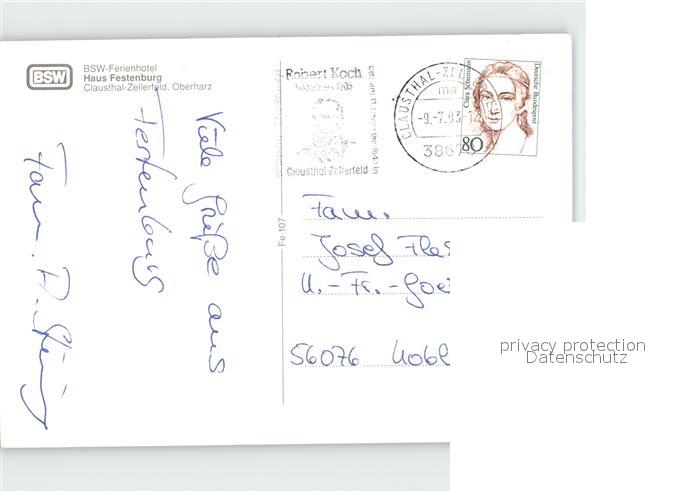 BSW
BSW-Ferienhotel
Haus Festenburg
Clausthal-Zellerfeld, Oberharz
Viele Grüße aus
Festenburg
Fam.
Fe 107
Robert Koch
Clausthal-Zellerfeld
CLAUSTHAL-ZELL
-9.-7.93-12
3867
Clara Schumann
Deutsche Bundespost
80
Fam.
Josef
56076 Kobl
privacy protection
Datenschutz